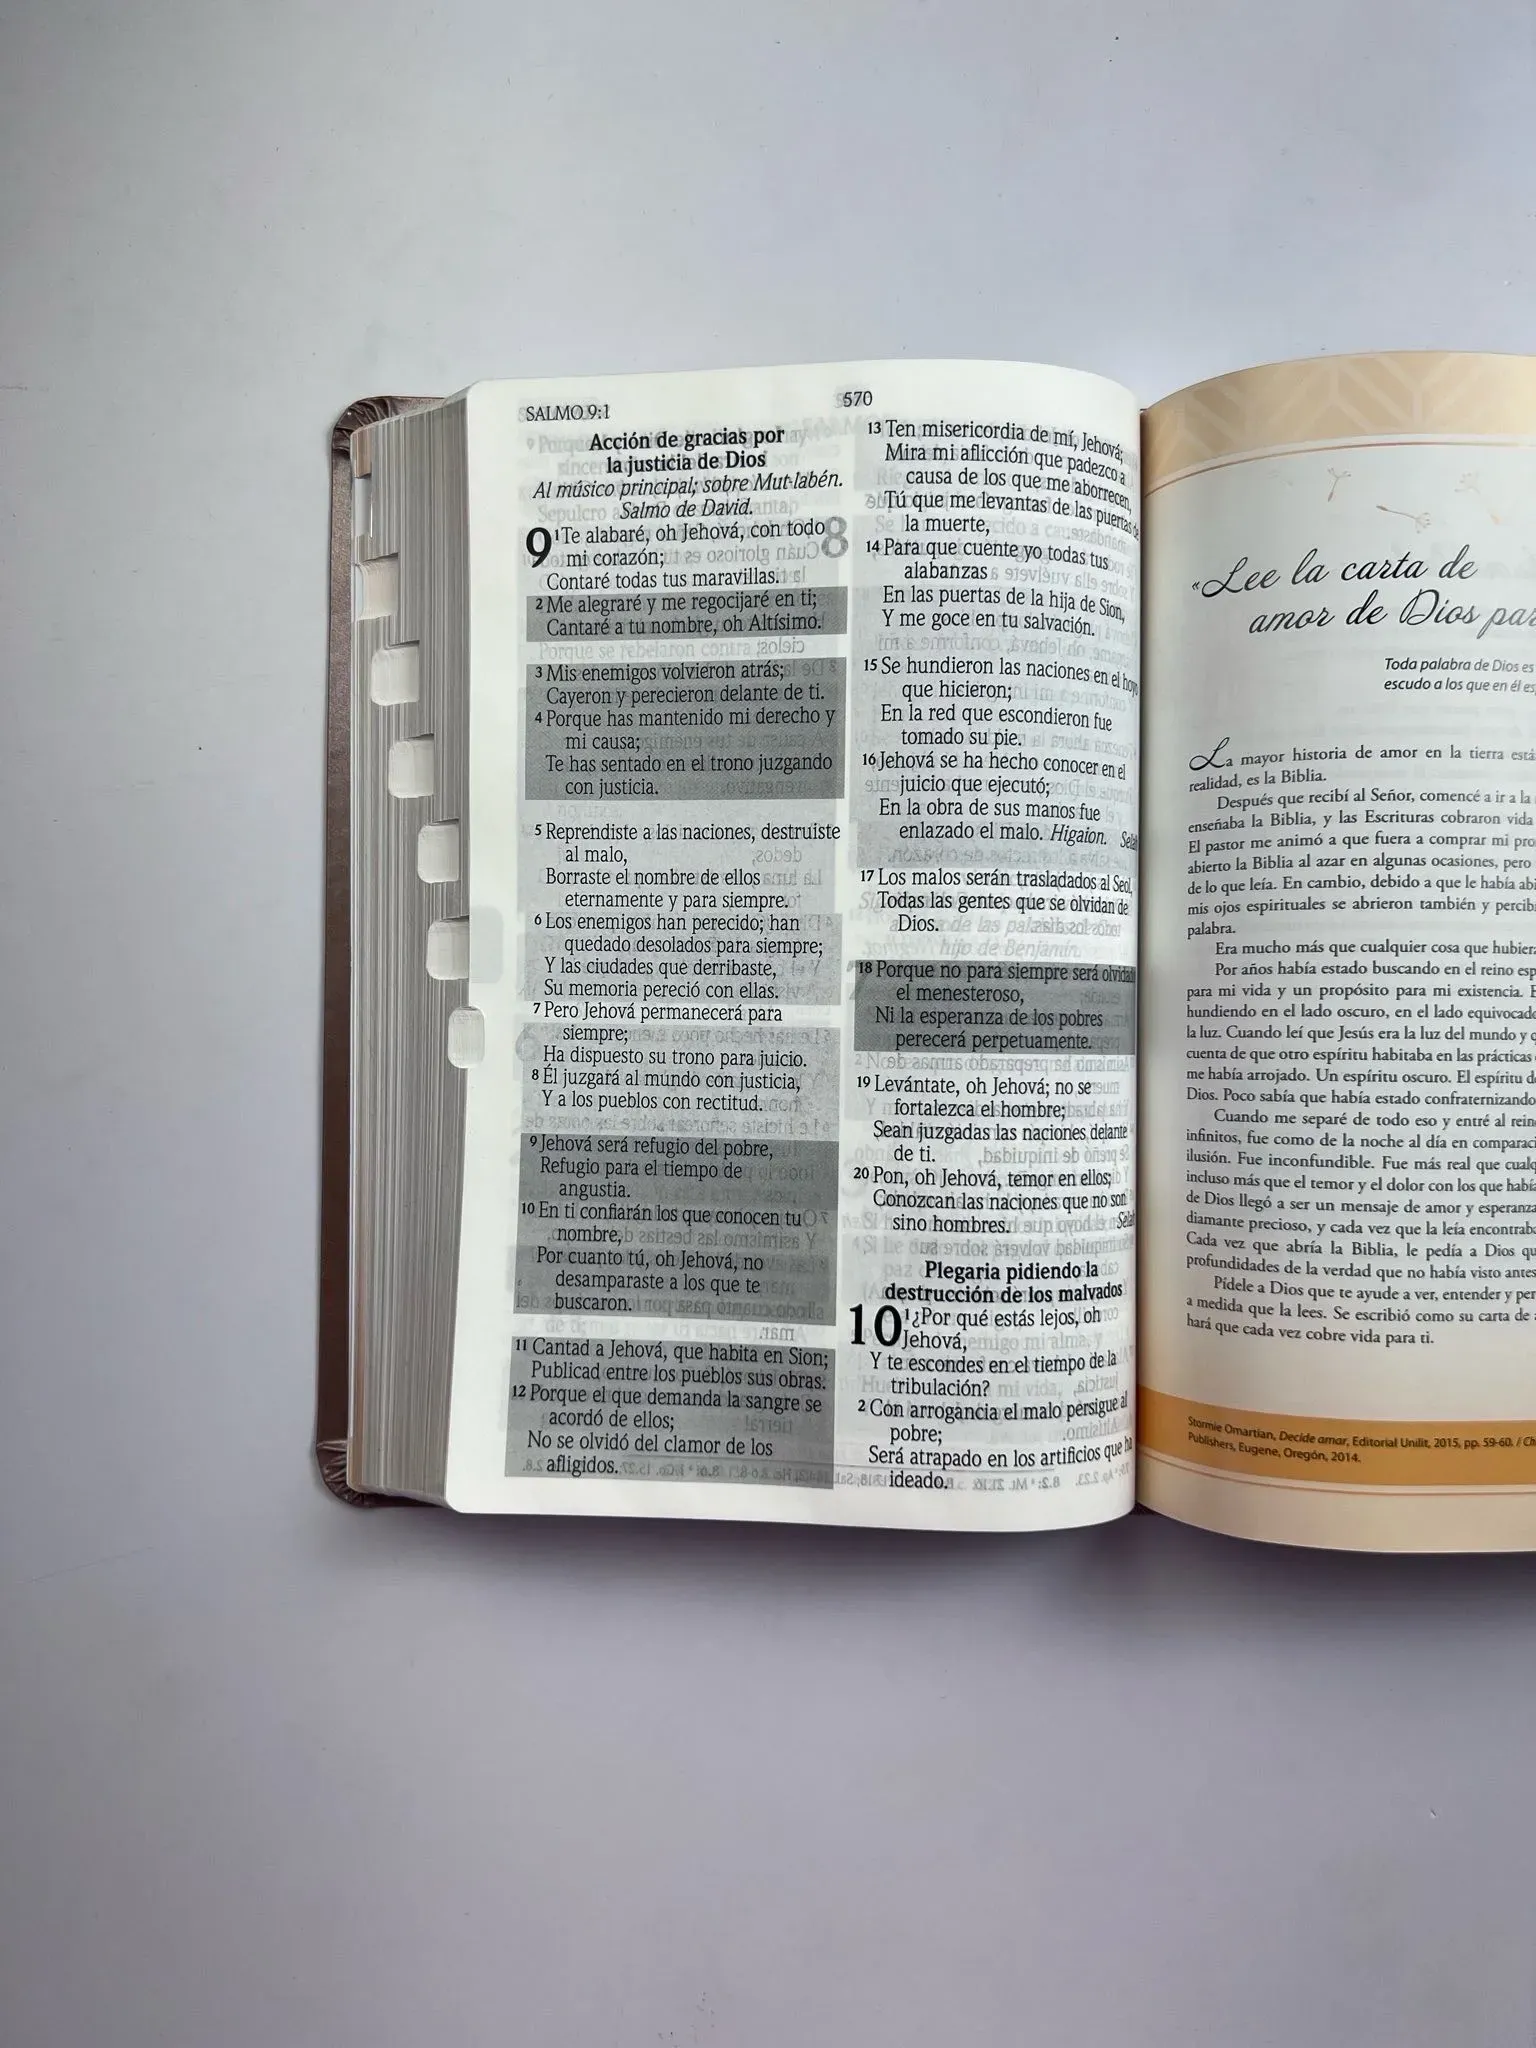 SALMO 9:1
570
Acción de gracias por
la justicia de Dios
Al músico principal; sobre Mut-labén.
Salmo de David.
9 1 Te alabaré, oh Jehová, con todo
mi corazón;
Contaré todas tus maravillas.
2 Me alegraré y me regocijaré en ti;
Cantaré a tu nombre, oh Altísimo.
3 Mis enemigos volvieron atrás;
Cayeron y perecieron delante de ti.
4 Porque has mantenido mi derecho y
mi causa;
Te has sentado en el trono juzgando
con justicia.
5 Reprendiste a las naciones, destruiste
al malo,
Borraste el nombre de ellos
eternamente y para siempre.
6 Los enemigos han perecido; han
quedado desolados para siempre;
Y las ciudades que derribaste,
Su memoria pereció con ellas.
7 Pero Jehová permanecerá para
siempre;
Ha dispuesto su trono para juicio.
8 Él juzgará al mundo con justicia,
Y a los pueblos con rectitud.
9 Jehová será refugio del pobre,
Refugio para el tiempo de
angustia.
10 En ti confiarán los que conocen tu
nombre,
Por cuanto tú, oh Jehová, no
desamparaste a los que te
buscaron.
11 Cantad a Jehová, que habita en Sion;
Publicad entre los pueblos sus obras.
12 Porque el que demanda la sangre se
acordó de ellos;
No se olvidó del clamor de los
afligidos.
13 Ten misericordia de mí, Jehová;
Mira mi aflicción que padezco a
causa de los que me aborrecen,
Tú que me levantas de las puertas de
la muerte,
14 Para que cuente yo todas tus
alabanzas
En las puertas de la hija de Sion,
Y me goce en tu salvación.
15 Se hundieron las naciones en el hoyo
que hicieron;
En la red que escondieron fue
tomado su pie.
16 Jehová se ha hecho conocer en el
juicio que ejecutó;
En la obra de sus manos fue
enlazado el malo. Higaion. Selah
17 Los malos serán trasladados al Seol,
Todas las gentes que se olvidan de
Dios.
18 Porque no para siempre será olvidado
el menesteroso,
Ni la esperanza de los pobres
perecerá perpetuamente.
19 Levántate, oh Jehová; no se
fortalezca el hombre;
Sean juzgadas las naciones delante
de ti.
20 Pon, oh Jehová, temor en ellos;
Conozcan las naciones que no son
sino hombres. Selah
Plegaria pidiendo la
destrucción de los malvados
10 1 ¿Por qué estás lejos, oh
Jehová,
Y te escondes en el tiempo de la
tribulación?
2 Con arrogancia el malo persigue al
pobre;
Será atrapado en los artificios que ha
ideado.
«Lee la carta de
amor de Dios par
Toda palabra de Dios es
escudo a los que en él es
La mayor historia de amor en la tierra está
realidad, es la Biblia.
Después que recibí al Señor, comencé a ir a la
enseñaba la Biblia, y las Escrituras cobraron vida
El pastor me animó a que fuera a comprar mi pro
abierto la Biblia al azar en algunas ocasiones, pero
de lo que leía. En cambio, debido a que le había abi
mis ojos espirituales se abrieron también y percib
palabra.
Era mucho más que cualquier cosa que hubier
Por años había estado buscando en el reino esp
para mi vida y un propósito para mi existencia. E
hundiendo en el lado oscuro, en el lado equivocado
la luz. Cuando leí que Jesús era la luz del mundo y q
cuenta de que otro espíritu habitaba en las prácticas
me había arrojado. Un espíritu oscuro. El espíritu d
Dios. Poco sabía que había estado confraternizando
Cuando me separé de todo eso y entré al rein
infinitos, fue como de la noche al día en comparaci
ilusión. Fue inconfundible. Fue más real que cualq
incluso más que el temor y el dolor con los que habí
de Dios llegó a ser un mensaje de amor y esperanza
diamante precioso, y cada vez que la leía encontrab
Cada vez que abría la Biblia, le pedía a Dios qu
profundidades de la verdad que no había visto antes
Pídele a Dios que te ayude a ver, entender y per
a medida que la lees. Se escribió como su carta de
hará que cada vez cobre vida para ti.
Stormie Omartian, Decide amar, Editorial Unilit, 2015, pp. 59-60. / Ch
Publishers, Eugene, Oregón, 2014.